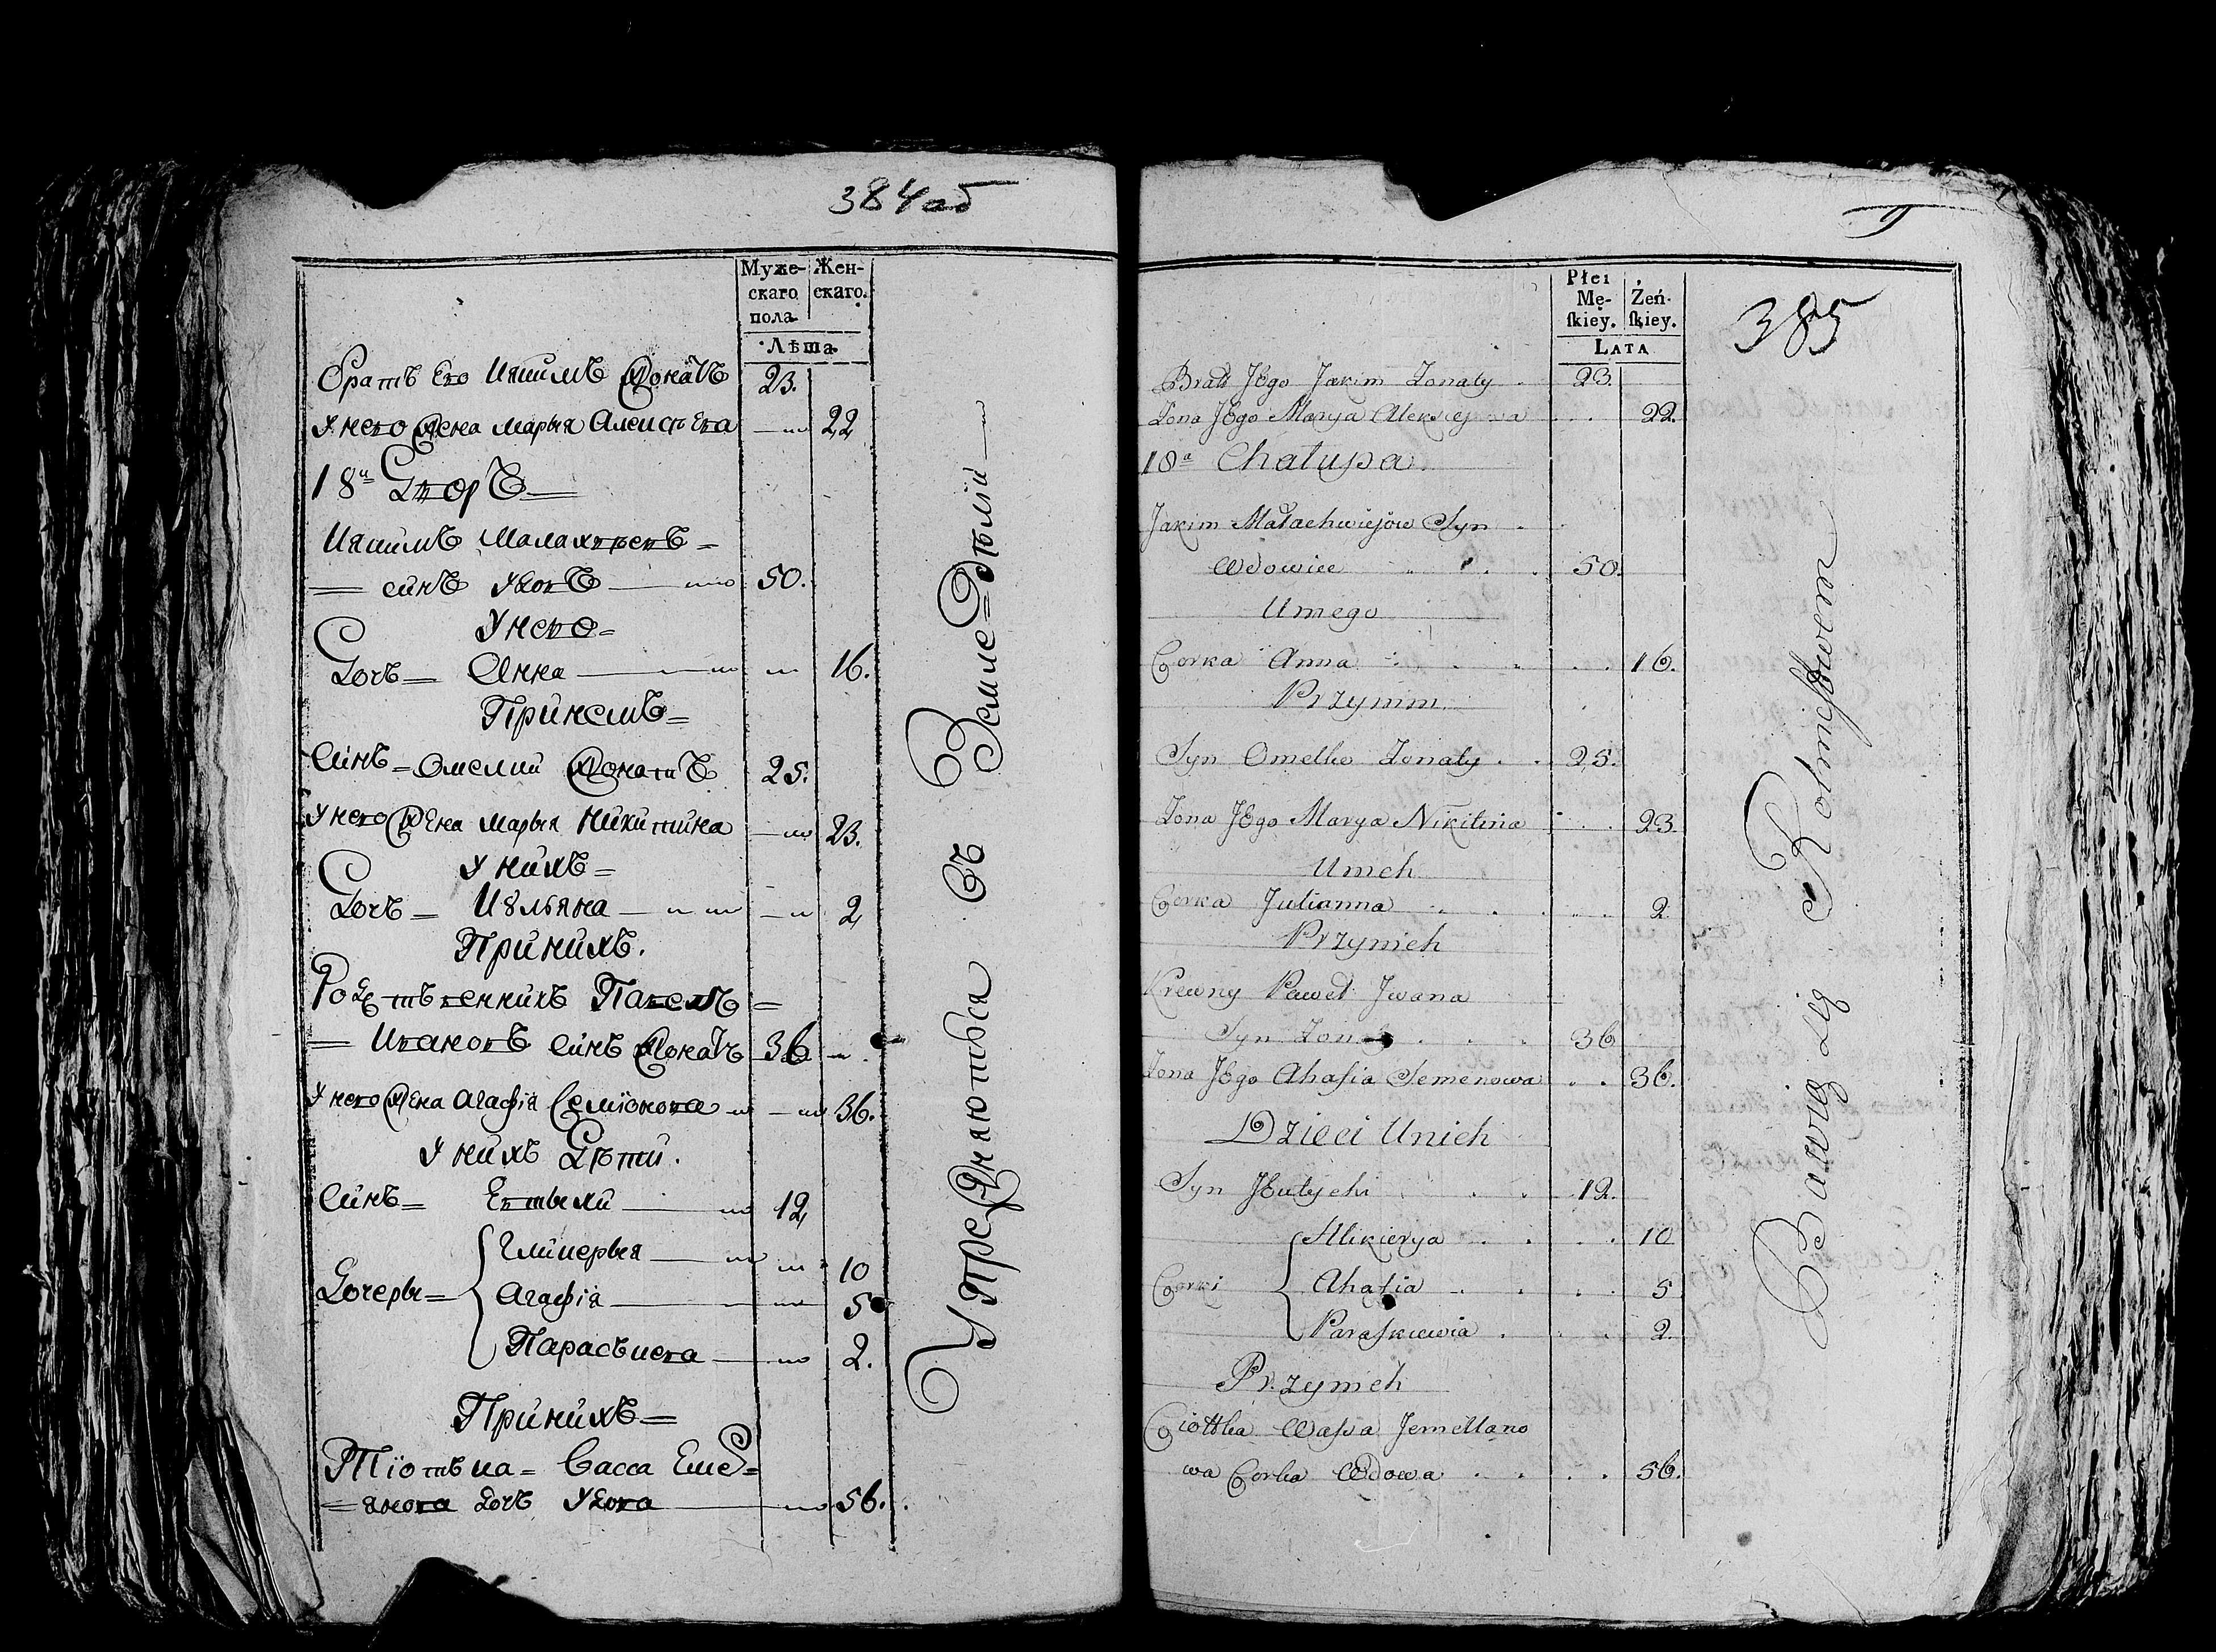 384об
Муже- Жен-
скаго скаго.
пола
Лѣта
Братъ Его Иякимъ Жонатъ 23.
У него Жена Марья Алексѣева 22
18й Дворъ
Иякимъ Малахвѣевъ
синъ Удовъ 50.
У него
Дочь Анна 16.
При немъ
Синъ Омелки Жонатъ 25.
У него Жена Марья Никитина 23.
У нихъ
Дочь Июльяна 2
При нихъ.
Родственникъ Павелъ
Ивановъ Синъ Жонатъ 36
У него Жена Агафія Семіонова 36.
У нихъ Дѣти.
Синъ Евтыхи 12
Гликерья 10
Дочеры Агафія 5
Парасъкева 2.
При нихъ
Тіотъка Васса Емел=
=янова Дочь Удова 56.
Упражняються въ Земледѣліи
385
Płci
Mę- Żeń-
ſkiey. ſkiey.
LATA
Brat JEgo Jakim Zonaty 23.
Zona JEgo Marya Alexiejewa 22.
18a Chatupa
Jakim Małachwiejow Syn
Wdowiec 50.
Uniego
Corka Anna 16.
Przynim
Syn Omelko Zonaty 25.
Zona JEgo Marya Nikitina 23.
Unich
Corka Julianna 2
Przynich
Krewny Paweł Jwana
Syn Zonaty 36
Zona JEgo Ahafia Semenowa 36.
Dzieci Unich
Syn JEutychi 12.
Hlikierya 10
Corki Ahafia 5
Paraſkiewia 2.
Przynich
Ciottka Waſsa Jemeliano
wa Corka Wdowa 56.
Bawią się Rolnictwem